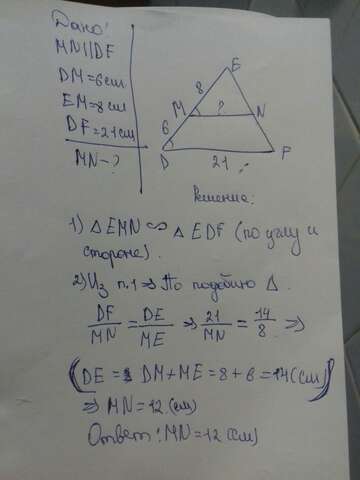 Дано:
MN||DF
DM=6см
EM=8см
DF=21см
MN-?
E
8
M ? N
6
D 21 F
Решение:
1) △EMN ∾ △EDF (по углу и
стороне).
2) Из п.1 ⇒ По подобию △.
DF/MN = DE/ME ⇒ 21/MN = 14/8 ⇒
(DE = DM+ME=8+6=14(см))
⇒ MN=12(см)
Ответ: MN=12(см)